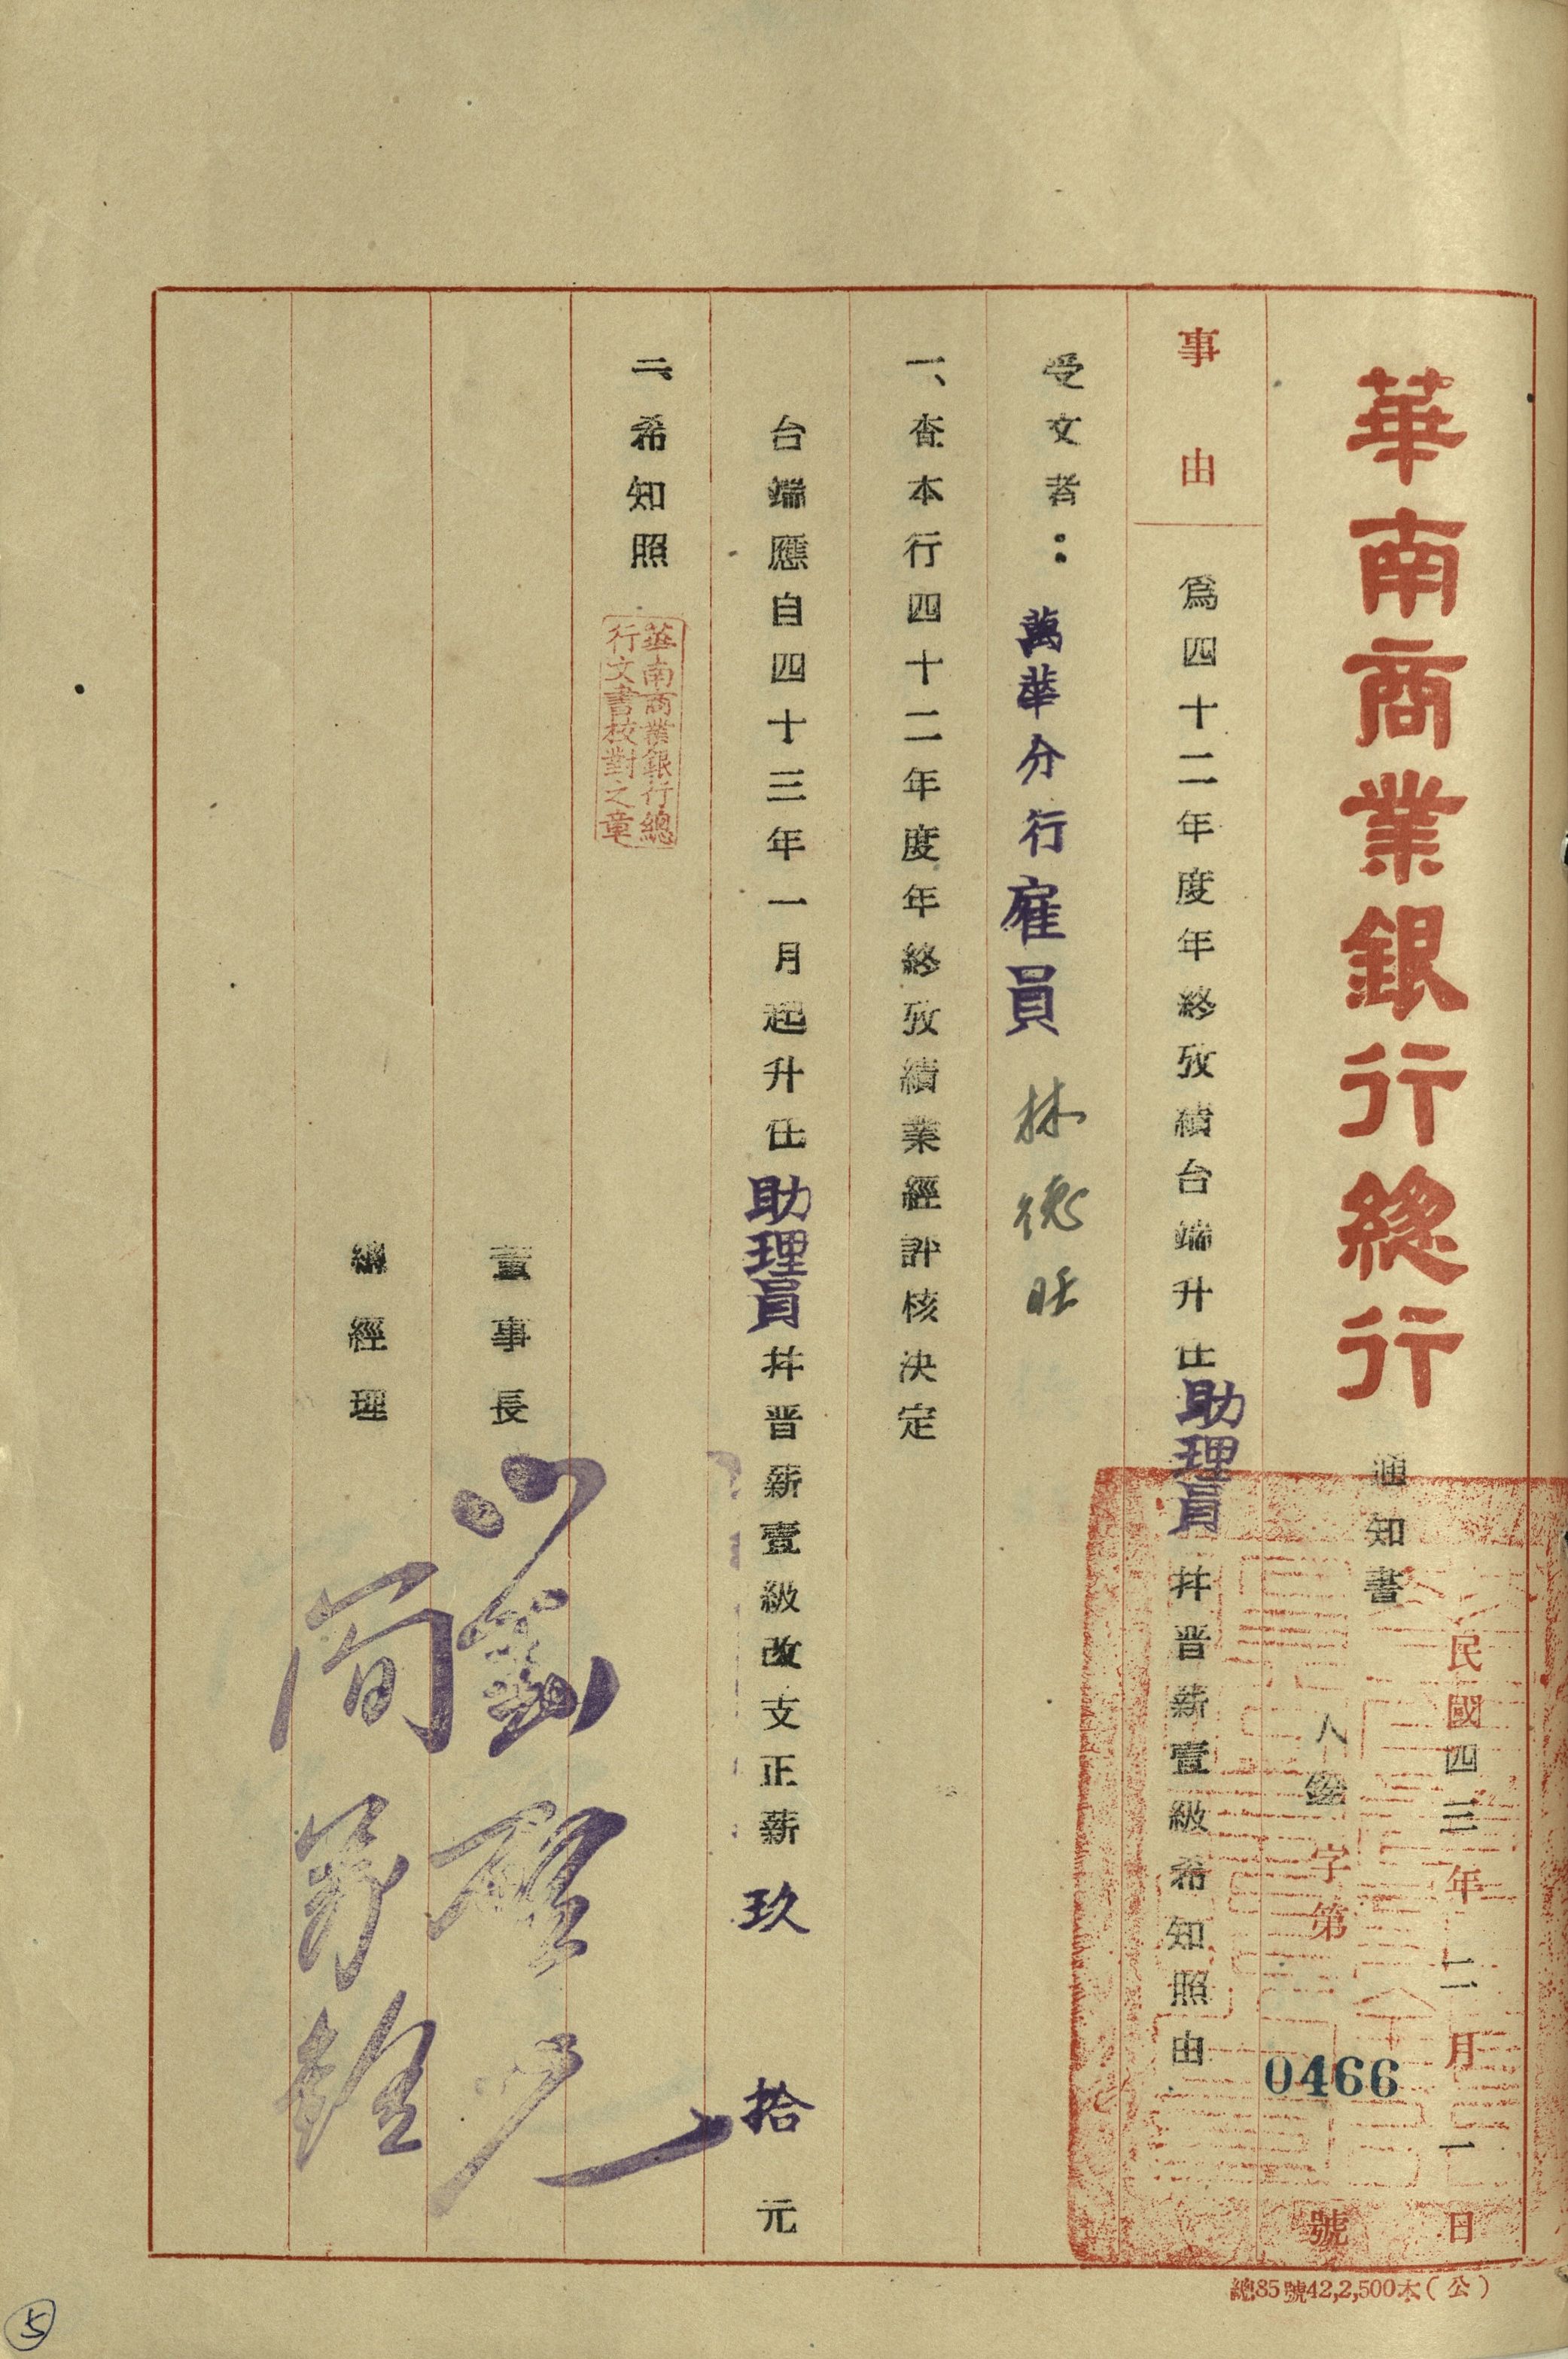 華南商業銀行總行
通知書
民國四三年二月一日
人銓字第0466號
事由
爲四十二年度年終攷績台端升任助理員并晋薪壹級希知照由
受文者：萬華分行雇員 林德旺
一、查本行四十二年度年終攷績業經評核決定
台端應自四十三年一月起升任助理員并晋薪壹級改支正薪玖拾元
二、希知照
華南商業銀行總
行文書校對之章
董事長 劉啓光
總經理
總85號42,2,500本(公)
5